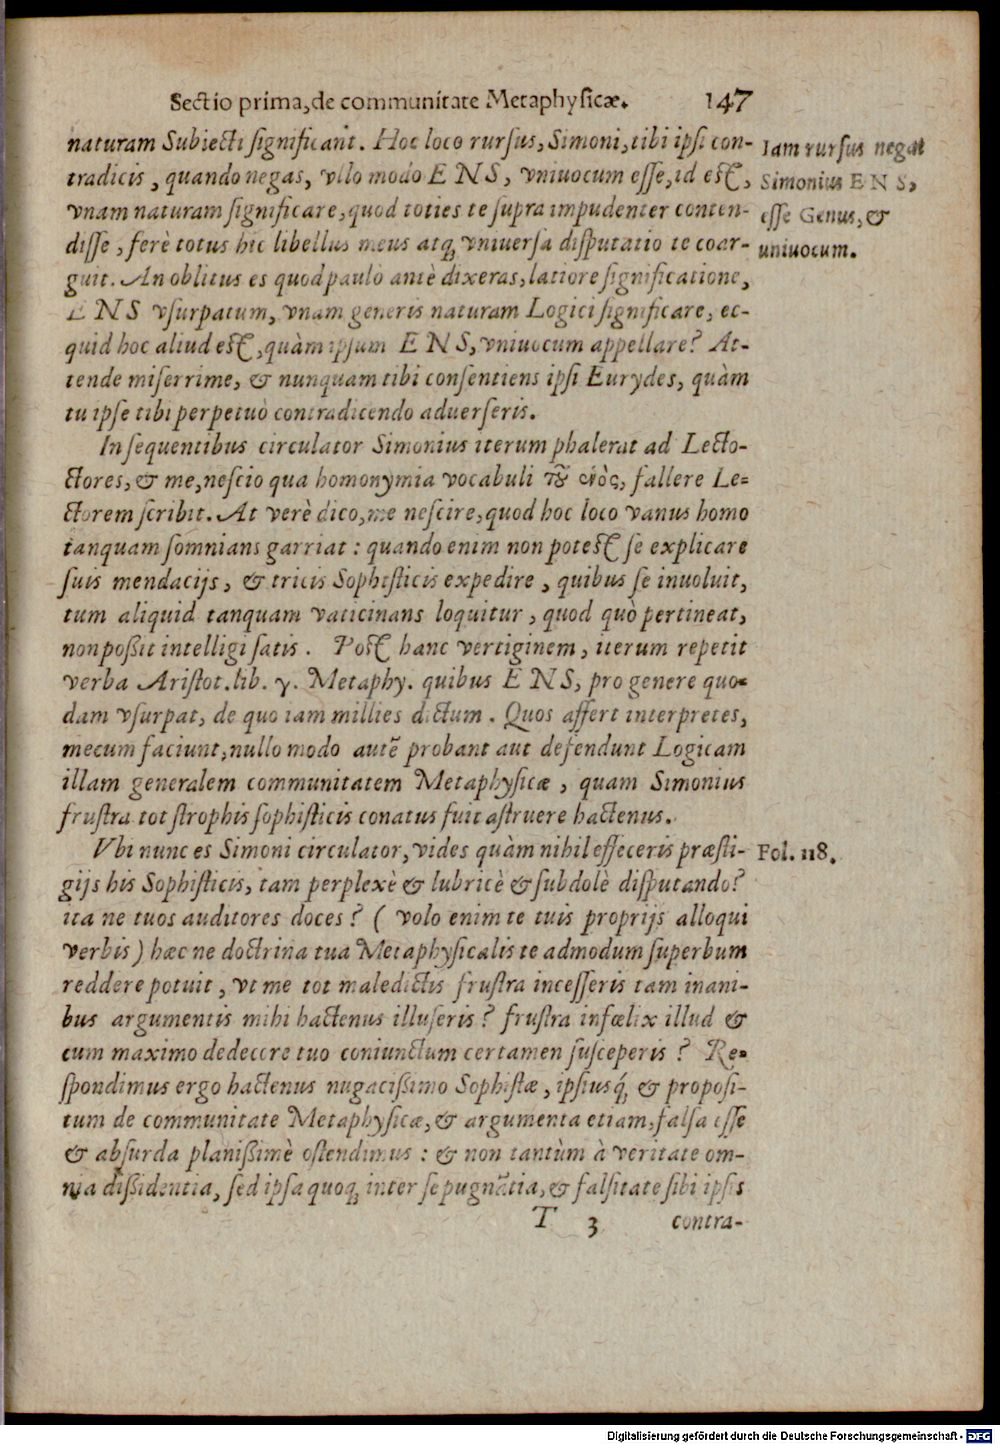 Sectio prima, de communitate Metaphysicæ. 147
naturam Subiecti significant. Hoc loco rursus, Simoni, tibi ipsi con-
tradicis, quando negas, vllo modo ENS, vniuocum esse, id est,
vnam naturam significare, quod toties te supra impudenter conten-
disse, ferè totus hic libellus meus atq; vniuersa disputatio te coar-
guit. An oblitus es quod paulò antè dixeras, latiore significatione,
ENS vsurpatum, vnam generis naturam Logici significare, ec-
quid hoc aliud est, quàm ipsum ENS, vniuocum appellare? At-
tende miserrime, & nunquam tibi consentiens ipsi Eurydes, quàm
tu ipse tibi perpetuò contradicendo aduerseris.
Iam rursus negat
Simonius ENS,
esse Genus, &
uniuocum.
In sequentibus circulator Simonius iterum phalerat ad Lecto-
ctores, & me, nescio qua homonymia vocabuli τȣ͂ ὄντος, fallere Le-
ctorem scribit. At verè dico, me nescire, quod hoc loco vanus homo
tanquam somnians garriat: quando enim non potest se explicare
suis mendacijs, & tricis Sophisticis expedire, quibus se inuoluit,
tum aliquid tanquam vaticinans loquitur, quod quò pertineat,
non poßit intelligi satis. Post hanc vertiginem, iterum repetit
verba Aristot. lib. γ. Metaphy. quibus ENS, pro genere quo-
dam vsurpat, de quo iam millies dictum. Quos affert interpretes,
mecum faciunt, nullo modo autē probant aut defendunt Logicam
illam generalem communitatem Metaphysicæ, quam Simonius
frustra tot strophis sophisticis conatus fuit astruere hactenus.
Vbi nunc es Simoni circulator, vides quàm nihil effeceris præsti-
gijs his Sophisticis, tam perplexè & lubricè & subdolè disputando?
ita ne tuos auditores doces? (volo enim te tuis proprijs alloqui
verbis) hæc ne doctrina tua Metaphysicalis te admodum superbum
reddere potuit, vt me tot maledictis frustra incesseris tam inani-
bus argumentis mihi hactenus illuseris? frustra infœlix illud &
cum maximo dedecore tuo coniunctum certamen susceperis? Re-
spondimus ergo hactenus nugacißimo Sophistæ, ipsiusq́; & proposi-
tum de communitate Metaphysicæ, & argumenta etiam, falsa esse
& absurda planißimè ostendimus: & non tantùm à veritate om-
nia dißidentia, sed ipsa quoq; inter se pugnātia, & falsitate sibi ipsis
Fol. 118.
T 3 contra-
Digitalisierung gefördert durch die Deutsche Forschungsgemeinschaft - DFG